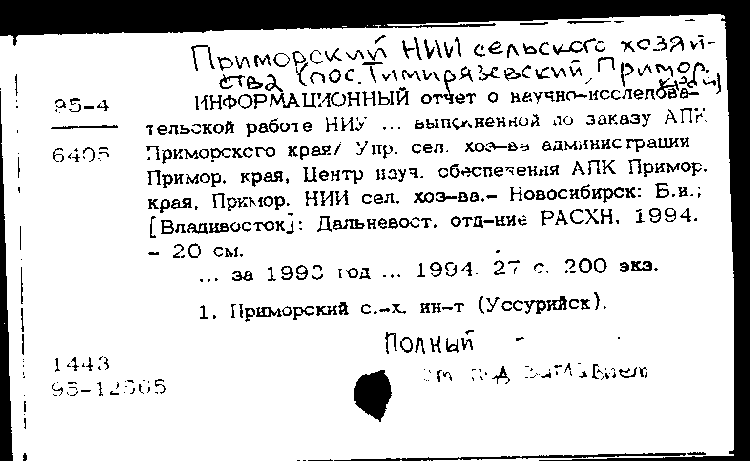 Приморский НИИ сельского хозяй-
ства (пос. Тимирязевский, Примор.
край)
95-4 ИНФОРМАЦИОННЫЙ отчет о научно-исследова-
тельской работе НИУ ... выполненной по заказу АПК
6405 Приморского края/ Упр. сел. хоз-ва администрации
Примор. края, Центр науч. обеспечения АПК Примор.
края, Примор. НИИ сел. хоз-ва.- Новосибирск: Б.и.;
[Владивосток]: Дальневост. отд-ние РАСХН, 1994.
- 20 см.
... за 1993 год ... 1994. 27 с. 200 экз.
1. Приморский с.-х. ин-т (Уссурийск).
Полный
1443 см. под заглавием
95-12565